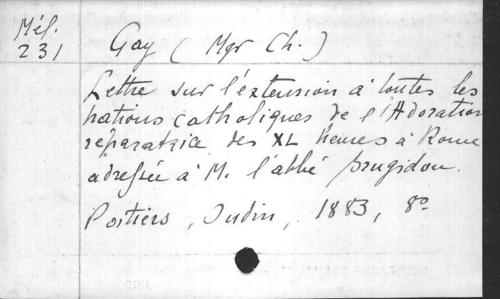 Mél.
231
Gay (Mgr Ch.)
Lettre sur l'extension à toutes les
nations catholiques de l'Adoration
réparatrice des XL heures à Rome
adressée à M. l'abbé Brugidou.
Poitiers, Oudin, 1883, 8º